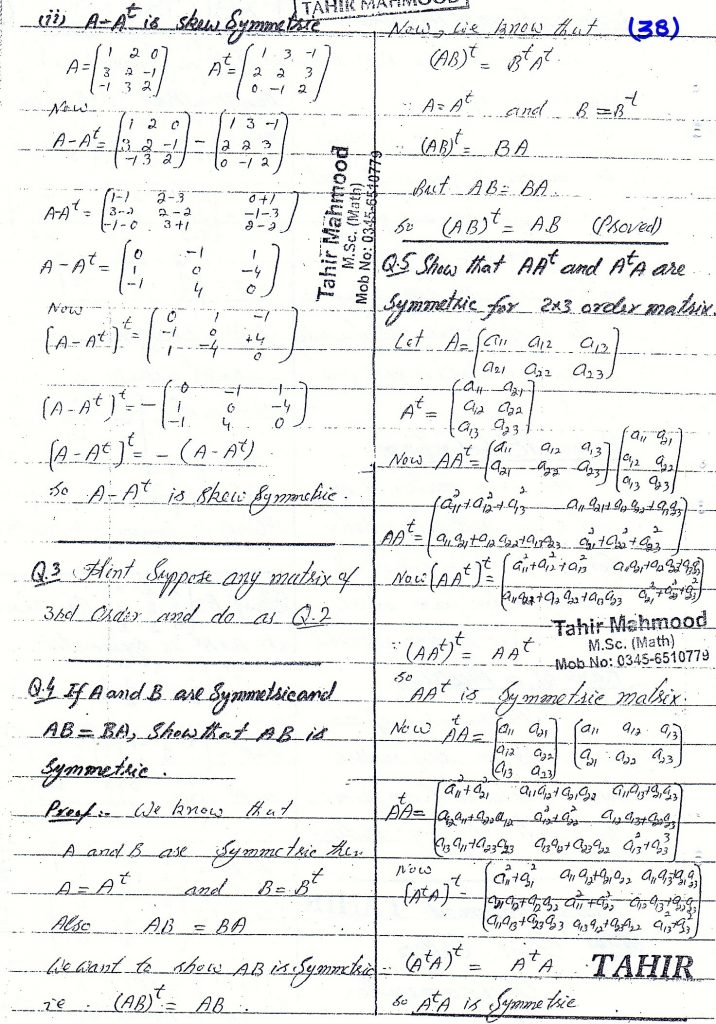 TAHIR MAHMOOD
(ii) A-Aᵗ is skew Symmetric
A = [1 2 0; 3 2 -1; -1 3 2] Aᵗ = [1 3 -1; 2 2 3; 0 -1 2]
Now
A-Aᵗ = [1 2 0; 3 2 -1; -1 3 2] - [1 3 -1; 2 2 3; 0 -1 2]
A-Aᵗ = [1-1 2-3 0+1; 3-2 2-2 -1-3; -1-0 3+1 2-2]
A-Aᵗ = [0 -1 1; 1 0 -4; -1 4 0]
Now
(A-Aᵗ)ᵗ = [0 1 -1; -1 0 +4; 1 -4 0]
(A-Aᵗ)ᵗ = -[0 -1 1; 1 0 -4; -1 4 0]
(A-Aᵗ)ᵗ = -(A-Aᵗ)
So A-Aᵗ is Skew Symmetric.
Q.3 Hint Suppose any matrix of
3rd Order and do as Q.2
Q.4 If A and B are Symmetric and
AB = BA, Show that AB is
Symmetric.
Proof:- We know that
A and B are Symmetric then
A = Aᵗ and B = Bᵗ
Also AB = BA
We want to show AB is Symmetric
ie. (AB)ᵗ = AB.
Tahir Mahmood
M.Sc. (Math)
Mob No: 0345-6510779
Now, we know that (38)
(AB)ᵗ = BᵗAᵗ
A = Aᵗ and B = Bᵗ
(AB)ᵗ = BA
But AB = BA
So (AB)ᵗ = AB (Proved)
Q.5 Show that AAᵗ and AᵗA are
Symmetric for 2x3 order matrix.
Let A = [a₁₁ a₁₂ a₁₃; a₂₁ a₂₂ a₂₃]
Aᵗ = [a₁₁ a₂₁; a₁₂ a₂₂; a₁₃ a₂₃]
Now AAᵗ = [a₁₁ a₁₂ a₁₃; a₂₁ a₂₂ a₂₃] [a₁₁ a₂₁; a₁₂ a₂₂; a₁₃ a₂₃]
AAᵗ = [a₁₁²+a₁₂²+a₁₃² a₁₁a₂₁+a₁₂a₂₂+a₁₃a₂₃; a₁₁a₂₁+a₁₂a₂₂+a₁₃a₂₃ a₂₁²+a₂₂²+a₂₃²]
Now (AAᵗ)ᵗ = [a₁₁²+a₁₂²+a₁₃² a₁₁a₂₁+a₁₂a₂₂+a₁₃a₂₃; a₁₁a₂₁+a₁₂a₂₂+a₁₃a₂₃ a₂₁²+a₂₂²+a₂₃²]
Tahir Mahmood
M.Sc. (Math)
Mob No: 0345-6510779
(AAᵗ)ᵗ = AAᵗ
So
AAᵗ is Symmetric matrix.
Now AᵗA = [a₁₁ a₂₁; a₁₂ a₂₂; a₁₃ a₂₃] [a₁₁ a₁₂ a₁₃; a₂₁ a₂₂ a₂₃]
AᵗA =
Now
(AᵗA)ᵗ =
(AᵗA)ᵗ = AᵗA TAHIR
So AᵗA is Symmetric